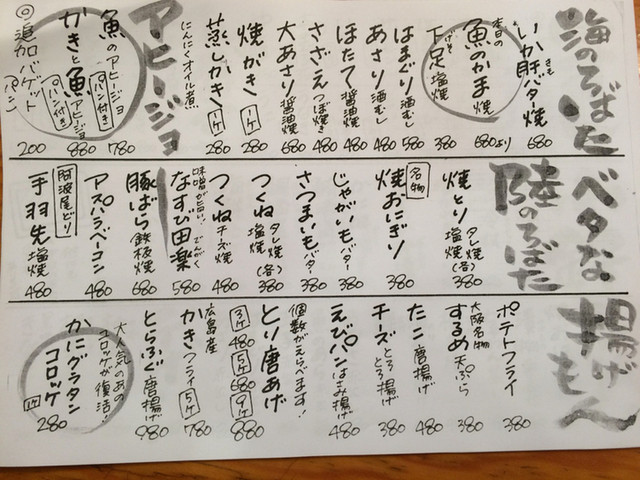 海のろばた
いか肝バター焼 680
本日の
魚のかま焼 680より
下足塩焼 380
はまぐり酒むし 580
あさり酒むし 480
ほたて醤油焼 480
さざえつぼ焼き 480
大あさり醤油焼 680
焼がき 一ケ 280
蒸しかき 一ケ 280
アヒージョ
にんにくオイル煮
魚のアヒージョ パン付き 780
かきと魚アヒージョ パン付き 880
◎追加バゲット(パン) 200
ベタな
陸のろばた
焼とり タレ焼 塩焼(各) 380
名物
焼おにぎり 380
じゃがいもバター 380
さつまいもバター 380
つくね タレ焼 塩焼(各) 380
つくねチーズ焼 480
味噌が旨い!でんがく
なすび田楽 580
豚ばら鉄板焼 680
アスパラベーコン 480
阿波尾どり
手羽先塩焼 480
揚げもん
ポテトフライ 380
大阪名物
するめ天ぷら 380
たこ唐揚げ 480
チーズとろとろ揚げ 380
えびパンはさみ揚げ 480
個数がえらべます!
とり唐あげ 880
3ケ 480 5ケ 680 9ケ
広島産
かきフライ 5ケ 780
とらふぐ唐揚げ 980
大人気のあの
コロッケが復活!
かにグラタン
コロッケ 1ケ 280